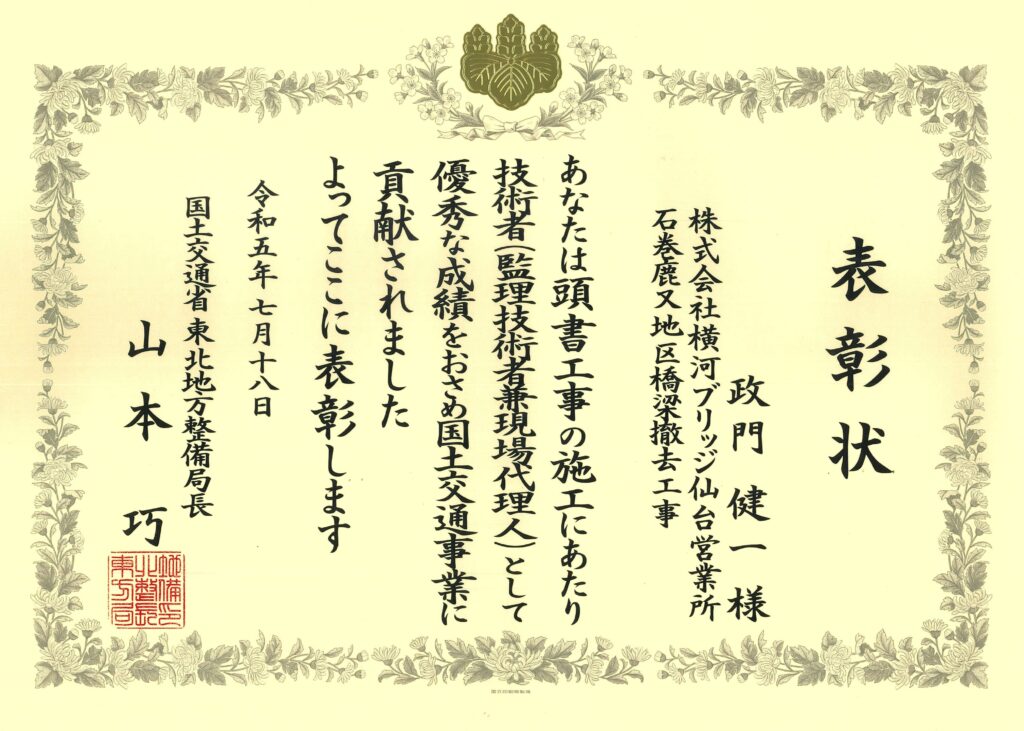 表彰状
政門健一様
株式会社横河ブリッジ仙台営業所
石巻鹿又地区橋梁撤去工事
あなたは頭書工事の施工にあたり
技術者(監理技術者兼現場代理人)として
優秀な成績をおさめ国土交通事業に
貢献されました
よってここに表彰します
令和五年七月十八日
国土交通省東北地方整備局長
山本巧